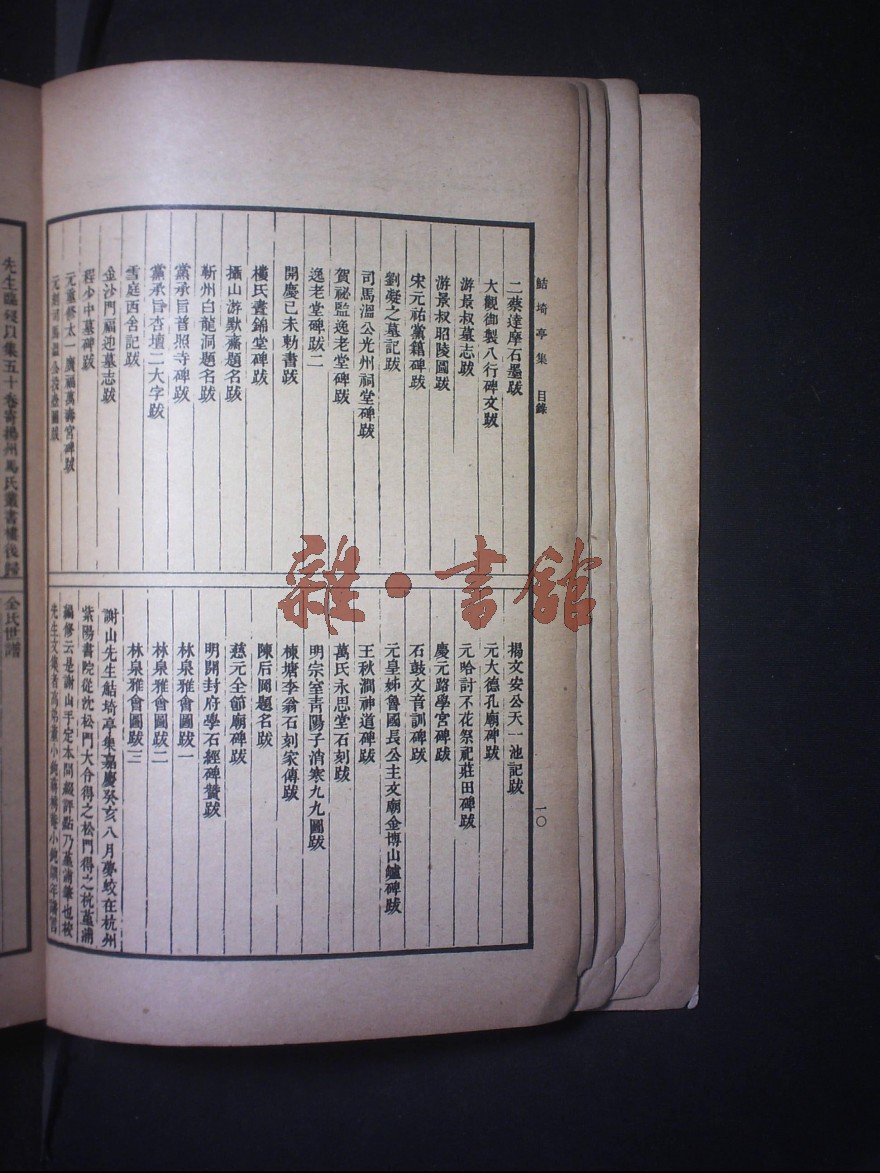 鮚埼亭集 目錄
一〇
二蔡達摩石墨跋
大觀御製八行碑文跋
游景叔墓志跋
游景叔昭陵圖跋
宋元祐黨籍碑跋
劉凝之墓記跋
司馬溫公光州祠堂碑跋
賀祕監逸老堂碑跋
逸老堂碑跋二
開慶己未勅書跋
樓氏晝錦堂碑跋
攝山游默齋題名跋
靳州白龍洞題名跋
黨承旨普照寺碑跋
黨承旨杏壇二大字跋
雪庭西舍記跋
金沙門福迎墓志跋
程少中墓碑跋
元重修太一廣福萬壽宮碑跋
元刻司馬溫公投壺圖跋
楊文安公天一池記跋
元大德孔廟碑跋
元哈討不花祭祀莊田碑跋
慶元路學宮碑跋
石鼓文音訓碑跋
元皇姊魯國長公主文廟金博山鑪碑跋
王秋澗神道碑跋
萬氏永思堂石刻跋
明宗室青陽子消寒九九圖跋
棟塘李翁石刻家傳跋
陳后岡題名跋
慈元全節廟碑跋
明開封府學石經碑贊跋
林泉雅會圖跋一
林泉雅會圖跋二
林泉雅會圖跋三
謝山先生鮚埼亭集嘉慶癸亥八月夢蛟在杭州
紫陽書院從沈松門大令得之松門得之杭堇浦
編修云是謝山手定本間綴評點乃堇浦筆也按
先生文集者高弟董小鈍
先生臨歿以集五十卷寄揚州馬氏叢書樓後歸
全氏世譜
雜·書館